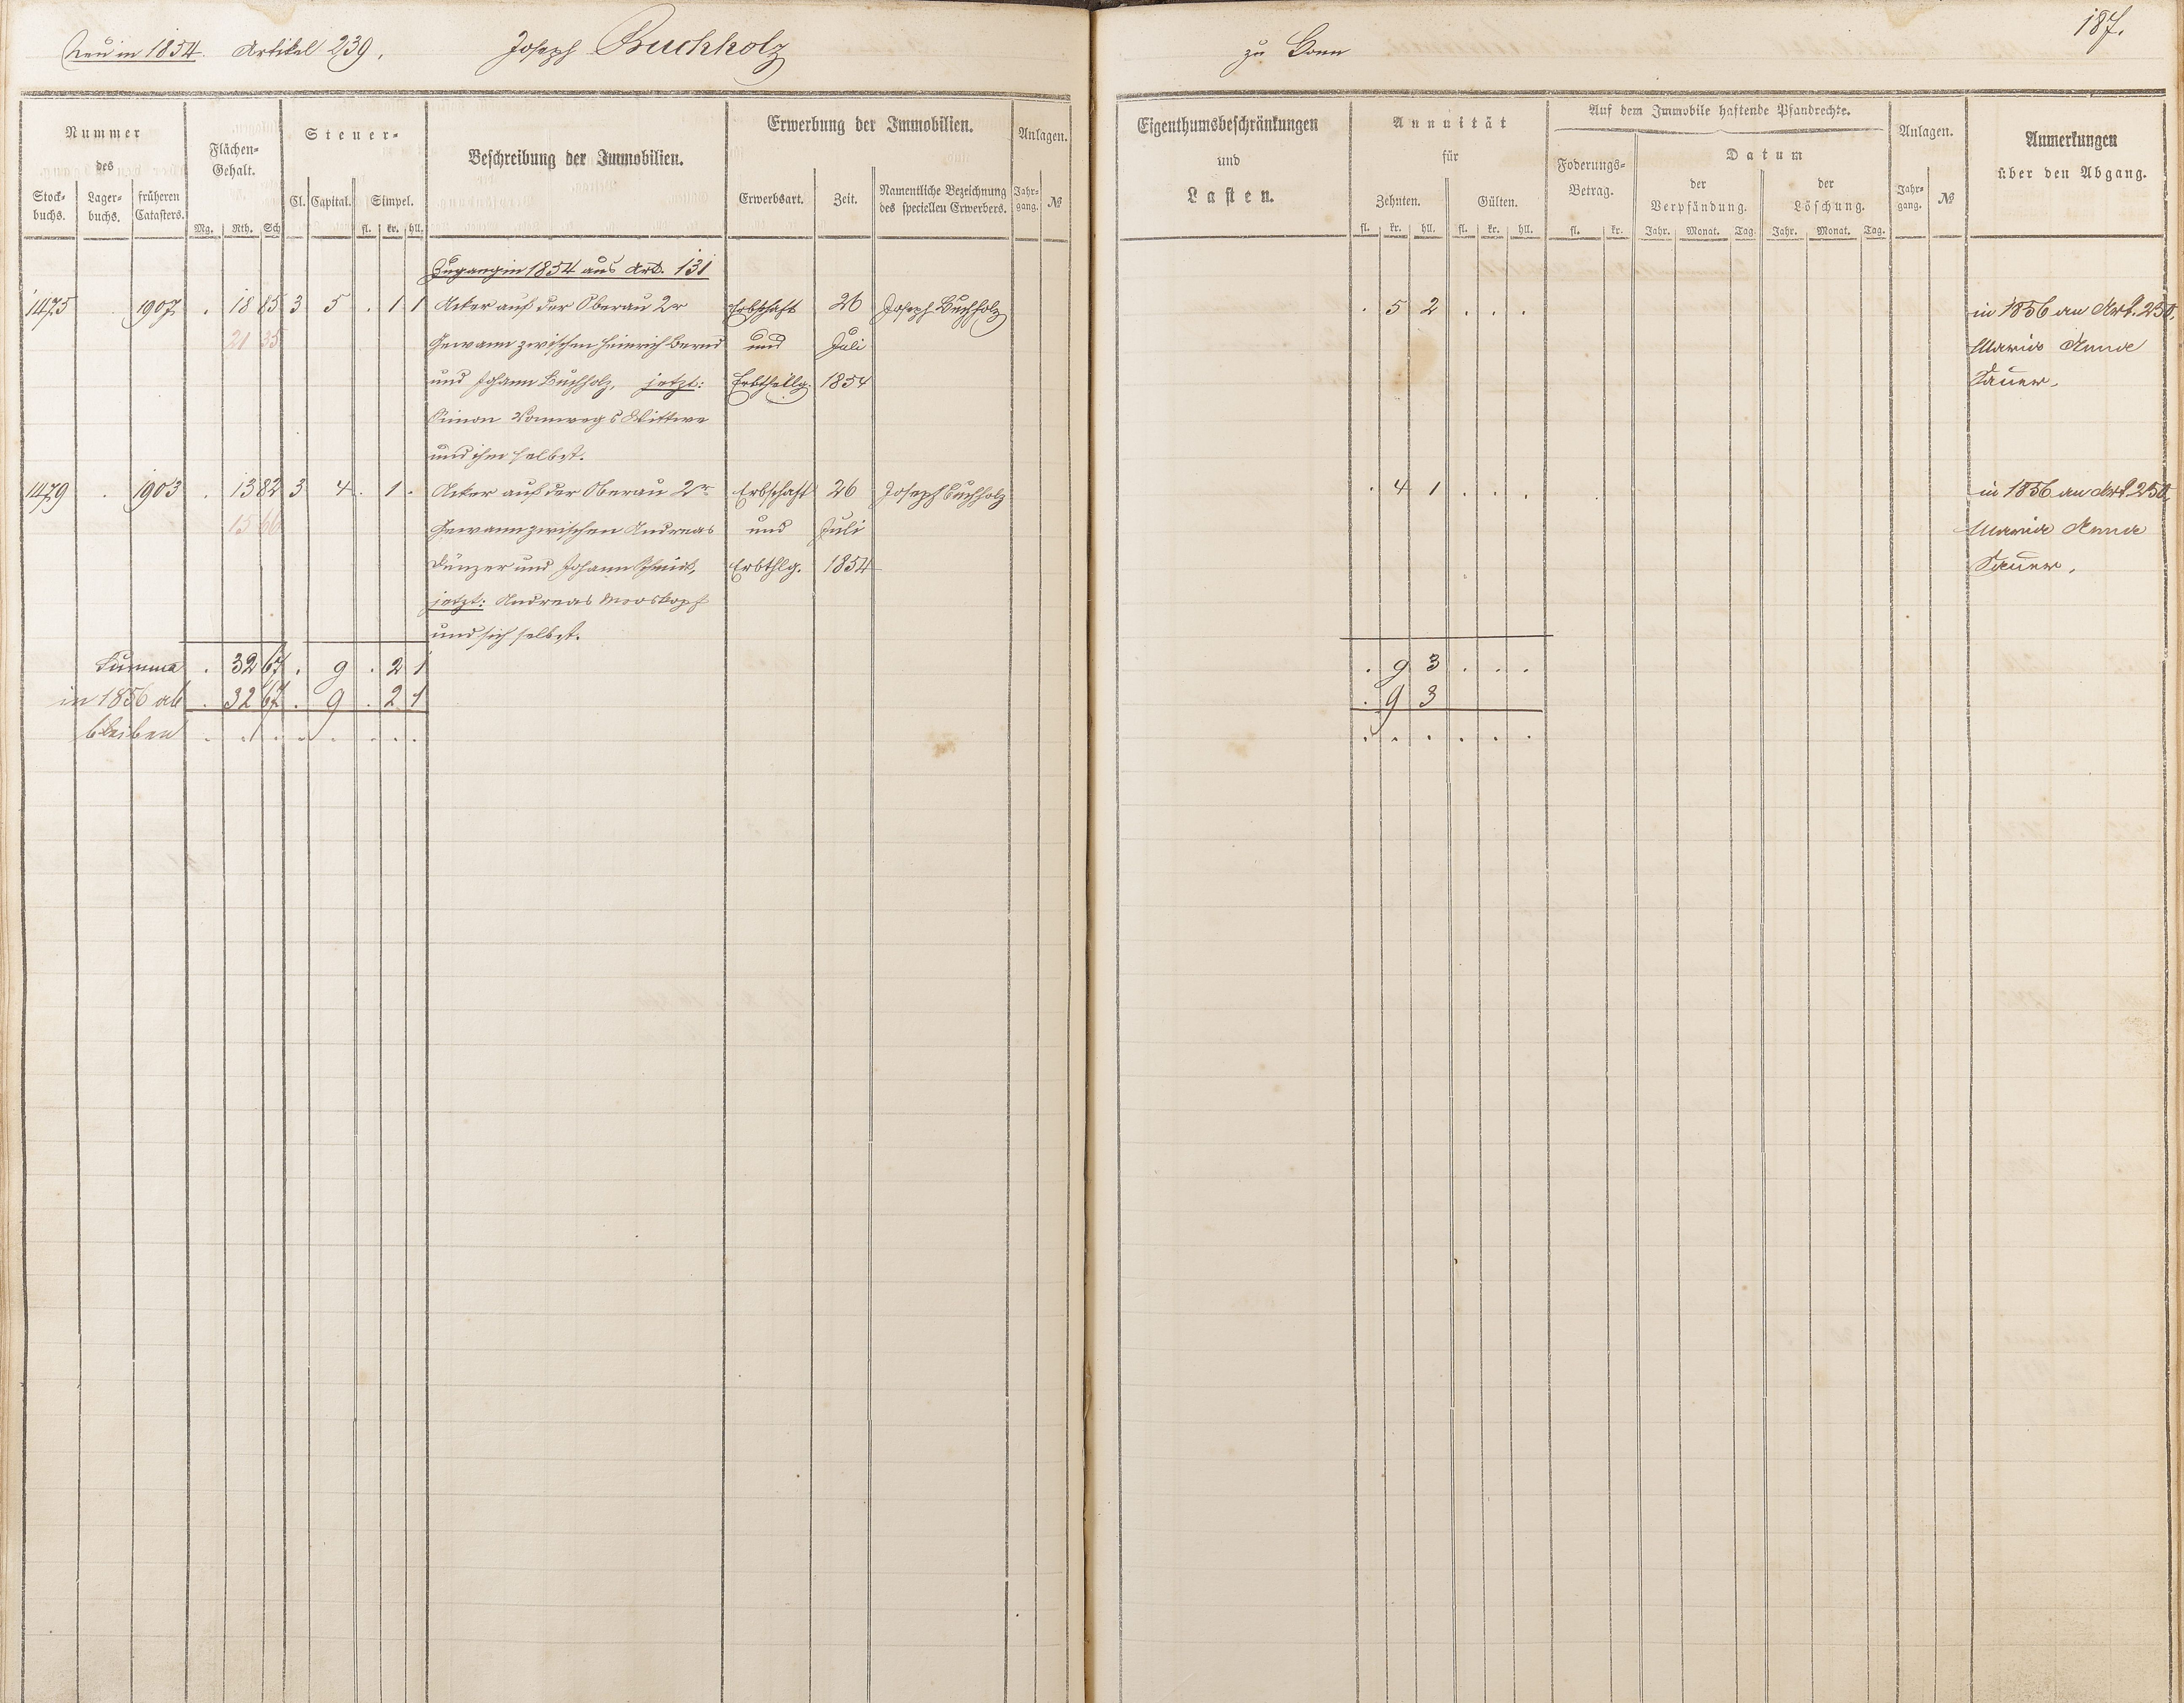 Neu in 1854. Artikel 239. Joseph Buchholz zu Bonn 187.
Nummer des
Stock-buchs. Lager-buchs. früheren Catasters.
Flächen-Gehalt.
Mg. Rth. Sch
Steuer-
Cl. Capital. Simpel.
fl. kr. hll.
Beschreibung der Immobilien.
Erwerbung der Immobilien.
Erwerbsart. Zeit. Namentliche Bezeichnung des speciellen Erwerbers.
Anlagen.
Jahr-gang. №
Eigenthumsbeschränkungen
und
Lasten.
Annuität
für
Zehnten. Gülten.
fl. kr. hll. fl. kr. hll.
Auf dem Immobile haftende Pfandrechte.
Foderungs-Betrag.
fl. kr.
Datum
der Verpfändung. der Löschung.
Jahr. Monat. Tag. Jahr. Monat. Tag.
Anlagen.
Jahr-gang. №
Anmerkungen
über den Abgang.
Zugang in 1854 aus Art. 131
1475 . 1907 . 18 85 3 5 . 1 1 Acker auf der Oberau 2r Erbschaft 26 Joseph Buchholz . 5 2 . . . in 1856 an Art. 250,
21 35 Gewann zwischen Heinrich Bernd und Juli Maria Anna
und Johann Buchholz, jetzt: Erbtheilg. 1854 Sauer.
Simon Wittwe
und ihm selbst.
1479 . 1903 . 13 82 3 4 . 1 . Acker auf der Oberau 2r Erbschaft 26 Joseph Buchholz . 4 1 . . . in 1856 an Art. 250,
15 66 Gewann zwischen Andreas und Juli Maria Anna
Dünzer und Johann Erbthlg. 1854 Sauer.
jetzt: Andreas Mooskopf
und sich selbst.
Summa . 32 67 . 9 . 2 1 . 9 3 . . .
in 1856 ab . 32 67 . 9 . 2 1 . 9 3
bleiben . . . . . . . . . . . . . .